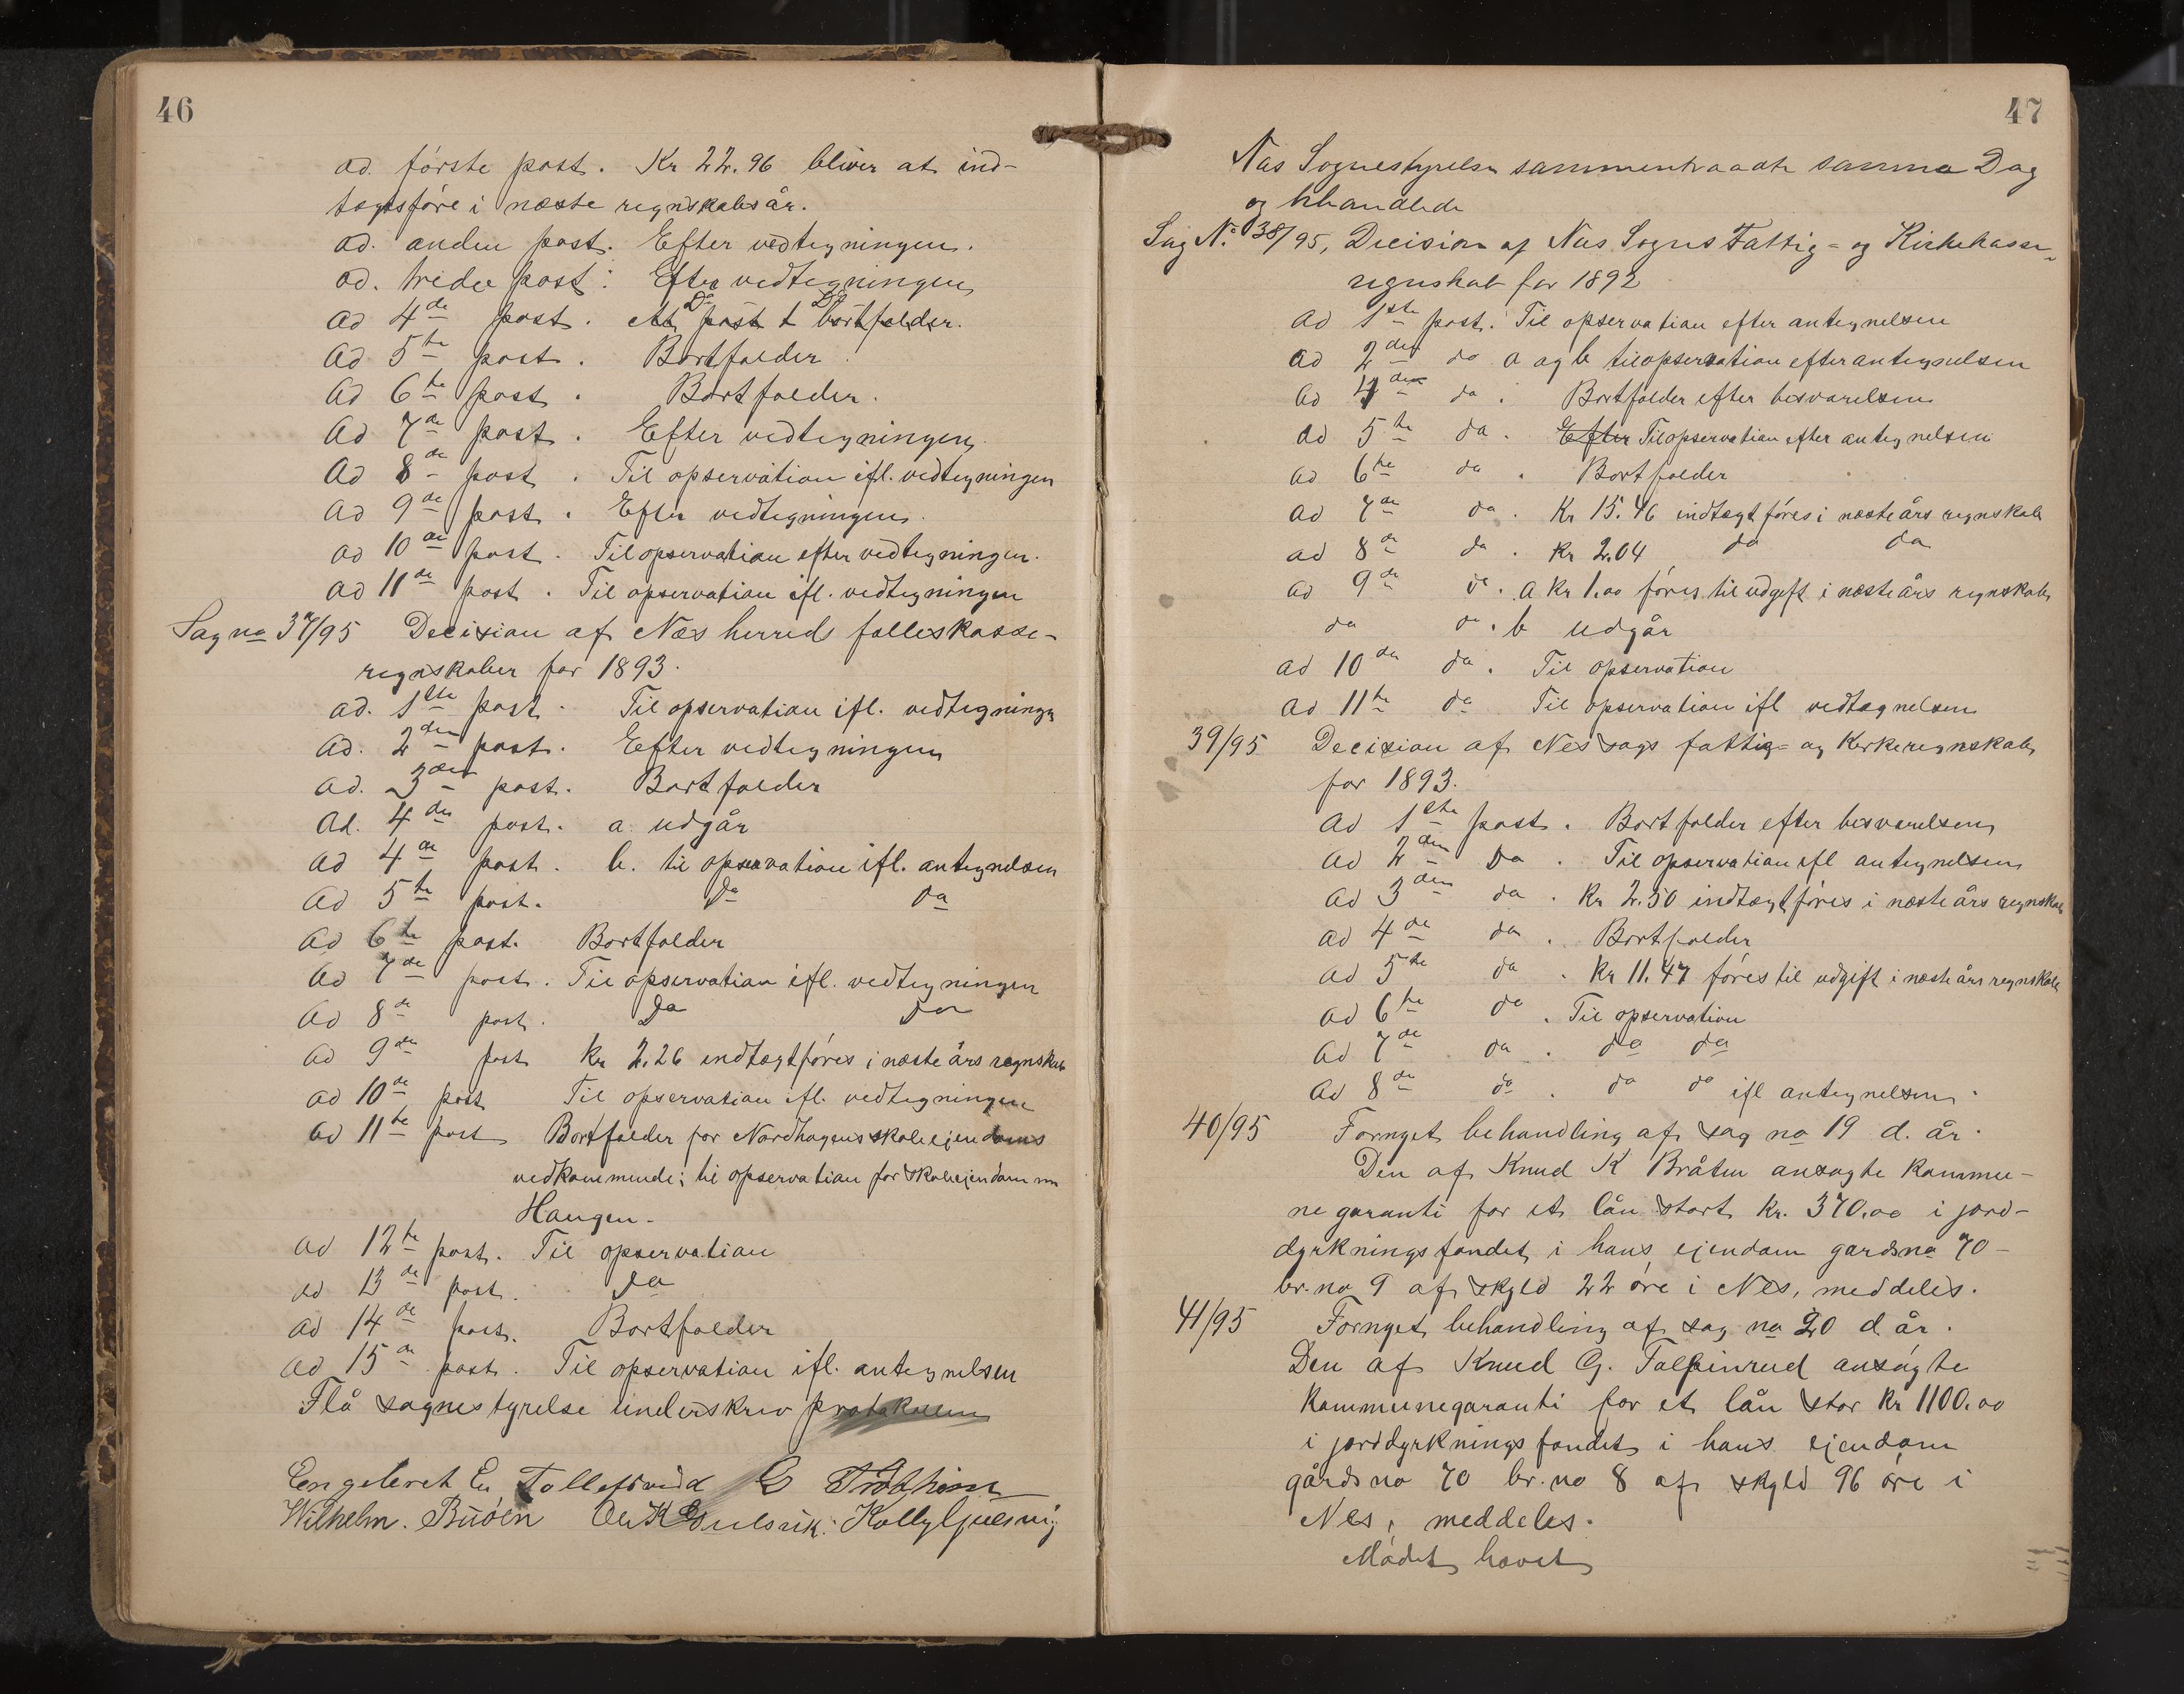 46
ad. første post. Kr 22.96 bliver at ind-
tægtsføre i næste regnskabsår.
ad. anden post. Efter vedtegningen.
ad. tredie post: Efter vedtegningen
ad 4de post. Do Do bortfalder.
Ad 5te post. Bortfalder
Ad 6te post. Bortfalder.
Ad 7de post. Efter vedtegningen.
Ad 8de post. Til opservation ifl. vedtegningen
Ad 9de post. Efter vedtegningen.
ad 10de post. Til opservation efter vedtegningen.
ad 11de post. Til opservation ifl. vedtegningen
Sag no 37/95 Decision af Næs herreds felleskasse-
regnskaber for 1893.
ad. 1ste post. Til opservation ifl. vedtegningen
Ad. 2den post. Efter vedtegningen
ad. 3die post. Bortfalder
Ad. 4de post. a. udgår
ad 4de post. b. til opservation ifl. antegnelsen
Ad 5te post. Do do
Ad 6te post. Bortfalder
Ad 7de post. Til opservation ifl. vedtegningen
Ad 8de post. Do do
Ad 9de post Kr 2.26 indtægtføres i næste års regnskab
ad 10de post Til opservation ifl. vedtegningen
Ad 11te post Bortfalder for Nordhagens skoleejendoms
vedkommende; til opservation for skoleejendommen
Haugen.
Ad 12te post. Til opservation
ad 13de post. Do
Ad 14de post. Bortfalder
Ad 15de post. Til opservation ifl. antegnelsen
Flå sognestyrelse underskrev protokollen
Engebret En Tollefsrud E Trøthim
Wilhelm. Buøen Ole K
47
Nas Sognestyrelse sammentraadte samme Dag
og behandlede
Sag No. 38/95, Decision af Nas Sogns Fattig- og Kirkekasse-
regnskab for 1892
Ad 1ste post. Til opservation efter antegnelsen
ad 2den do a og b til opservation efter antegnelsen
Ad 4de do. Bortfalder efter besvarelsen
ad 5te do. Efter Til opservation efter antegnelsen
ad 6te do. Bortfalder
ad 7de do. Kr 15.46 indtægtføres i næste års regnskab
ad 8de do. Kr 2.04 do do
ad 9de do. a Kr 1.00 føres til udgift i næste års regnskab
do do. b udgår
ad 10de do. Til opservation
Ad 11te do Til opservation ifl vedtægnelsen
39/95 Decision af Nes sogs fattig- og Kirkeregnskab
for 1893.
Ad 1ste post. Bortfalder efter besvarelsen
Ad 2den Do. Til opservation ifl antegnelsen
Ad 3dem do. Kr 2.50 indtægtføres i næste års regnskab
Ad 4de do. Bortfalder
Ad 5te do. Kr 11.47 føres til udgift i næste års regnskab
Ad 6te do. Til opservation
Ad 7de do. do do
Ad 8de do. do do ifl antegnelsen.
40/95 Fornyet behandling af sag no 19 d. år.
Den af Knud K Bråten ansøgte kommu-
ne garanti for et lån stort Kr. 370.00 i jord-
dyrkningsfondet i hans ejendom gardsno 70-
br. no 9 af skyld 22 øre i Nes, meddeles.
41/95 Fornyet behandling af sag no 20 d år.
Den af Knud G. ansøgte
Kommunegaranti for et lån stor Kr 1100.00
i jorddyrkningsfondet i hans ejendom
gårdsno 70 br. no 8 af skyld 96 øre i
Nes, meddeles.
Mødet hævet